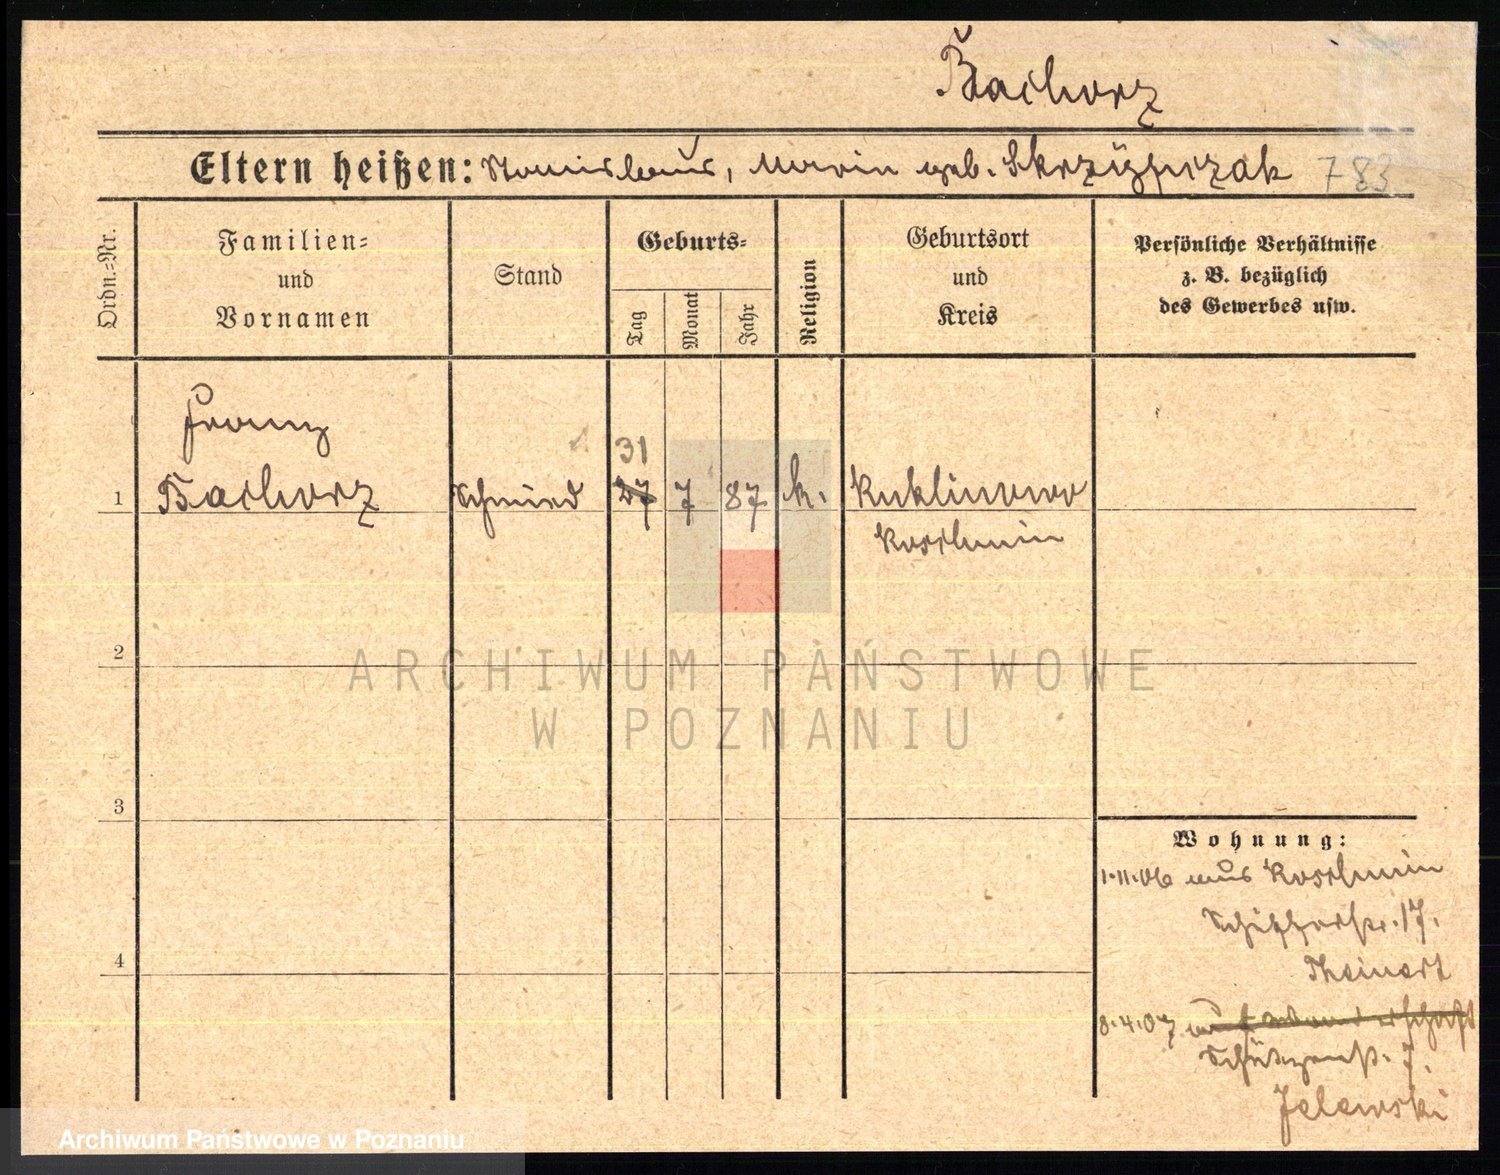 Bachorz
Eltern heißen: Stanislaus, Maria geb. Skrzypczak 783
Ordn.-Nr.
Familien-
und
Vornamen
Stand
Geburts-
Tag
Monat
Jahr
Religion
Geburtsort
und
Kreis
Persönliche Verhältnisse
z. B. bezüglich
des Gewerbes usw.
Franz
31
1 Bachorz Schmied 27 7 87 k. Kuklinowo
Koschmin
2
ARCHIWUM PAŃSTWOWE
W POZNANIU
3
Wohnung:
1.11.06 aus Koschmin
17.
Theinert
4
8.4.07 auf Wanderschaft
Schützenstr. 7.
Jelewski
Archiwum Państwowe w Poznaniu